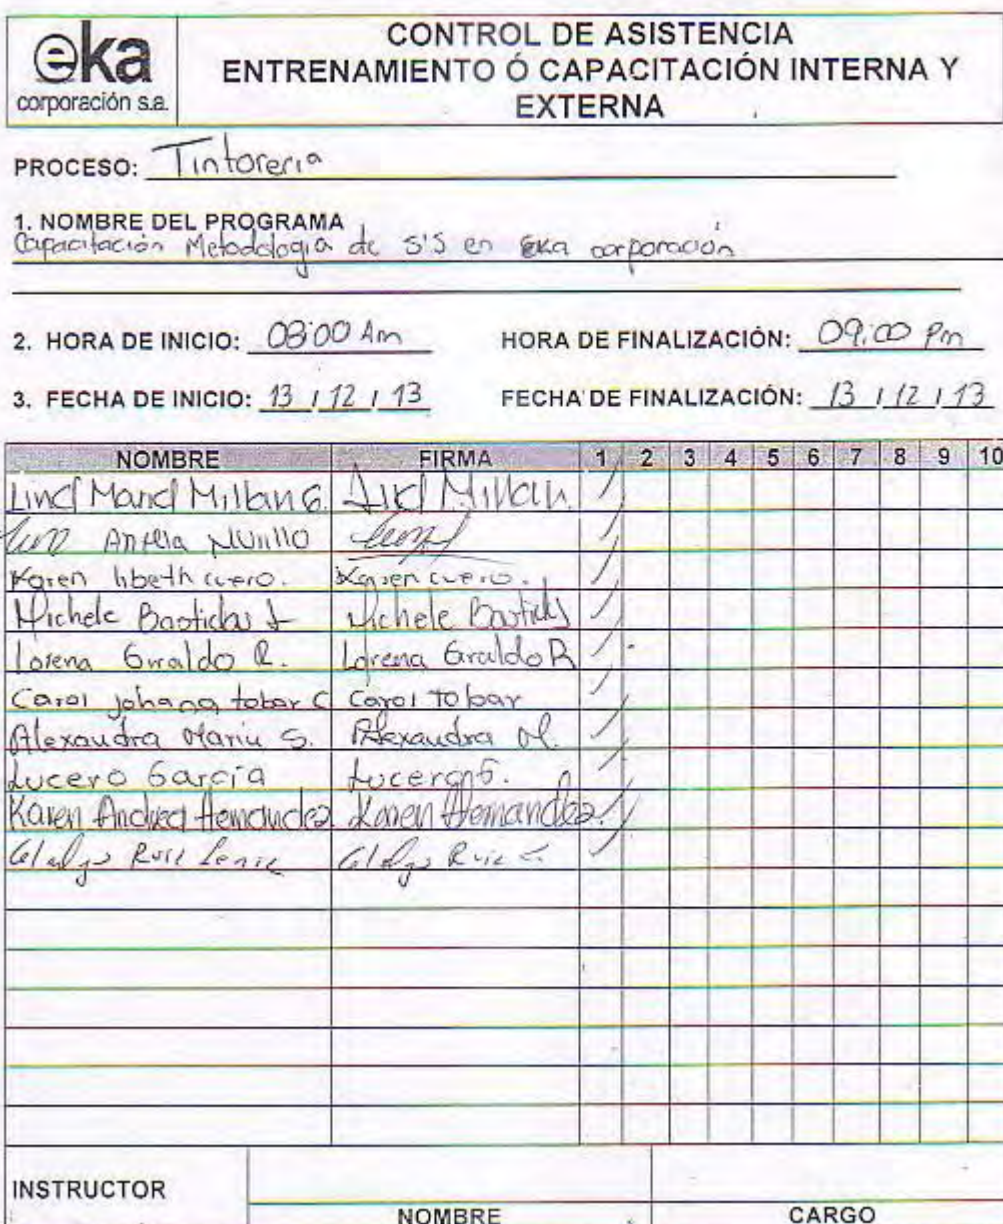 eka
corporación s.a.
CONTROL DE ASISTENCIA
ENTRENAMIENTO Ó CAPACITACIÓN INTERNA Y
EXTERNA
PROCESO: Tintoreria
1. NOMBRE DEL PROGRAMA
Capacitación Metodologia de 5'S en Eka corporación
2. HORA DE INICIO: 08:00 Am HORA DE FINALIZACIÓN: 09:00 Pm
3. FECHA DE INICIO: 13 / 12 / 13 FECHA DE FINALIZACIÓN: 13 / 12 / 13
NOMBRE FIRMA 1 2 3 4 5 6 7 8 9 10
Millan G. Millan
Murillo
Karen libeth cuero. Karen cuero.
Michele Bastidas Michele Bastidas
Lorena Giraldo R. Lorena Giraldo R
Carol johana tobar C Carol Tobar
Alexandra Maria S. Alexandra M.
Lucero Garcia Lucero G.
Karen Andrea Hernandez Karen Hernandez
Gladys Ruiz Gladys Ruiz
INSTRUCTOR
NOMBRE CARGO